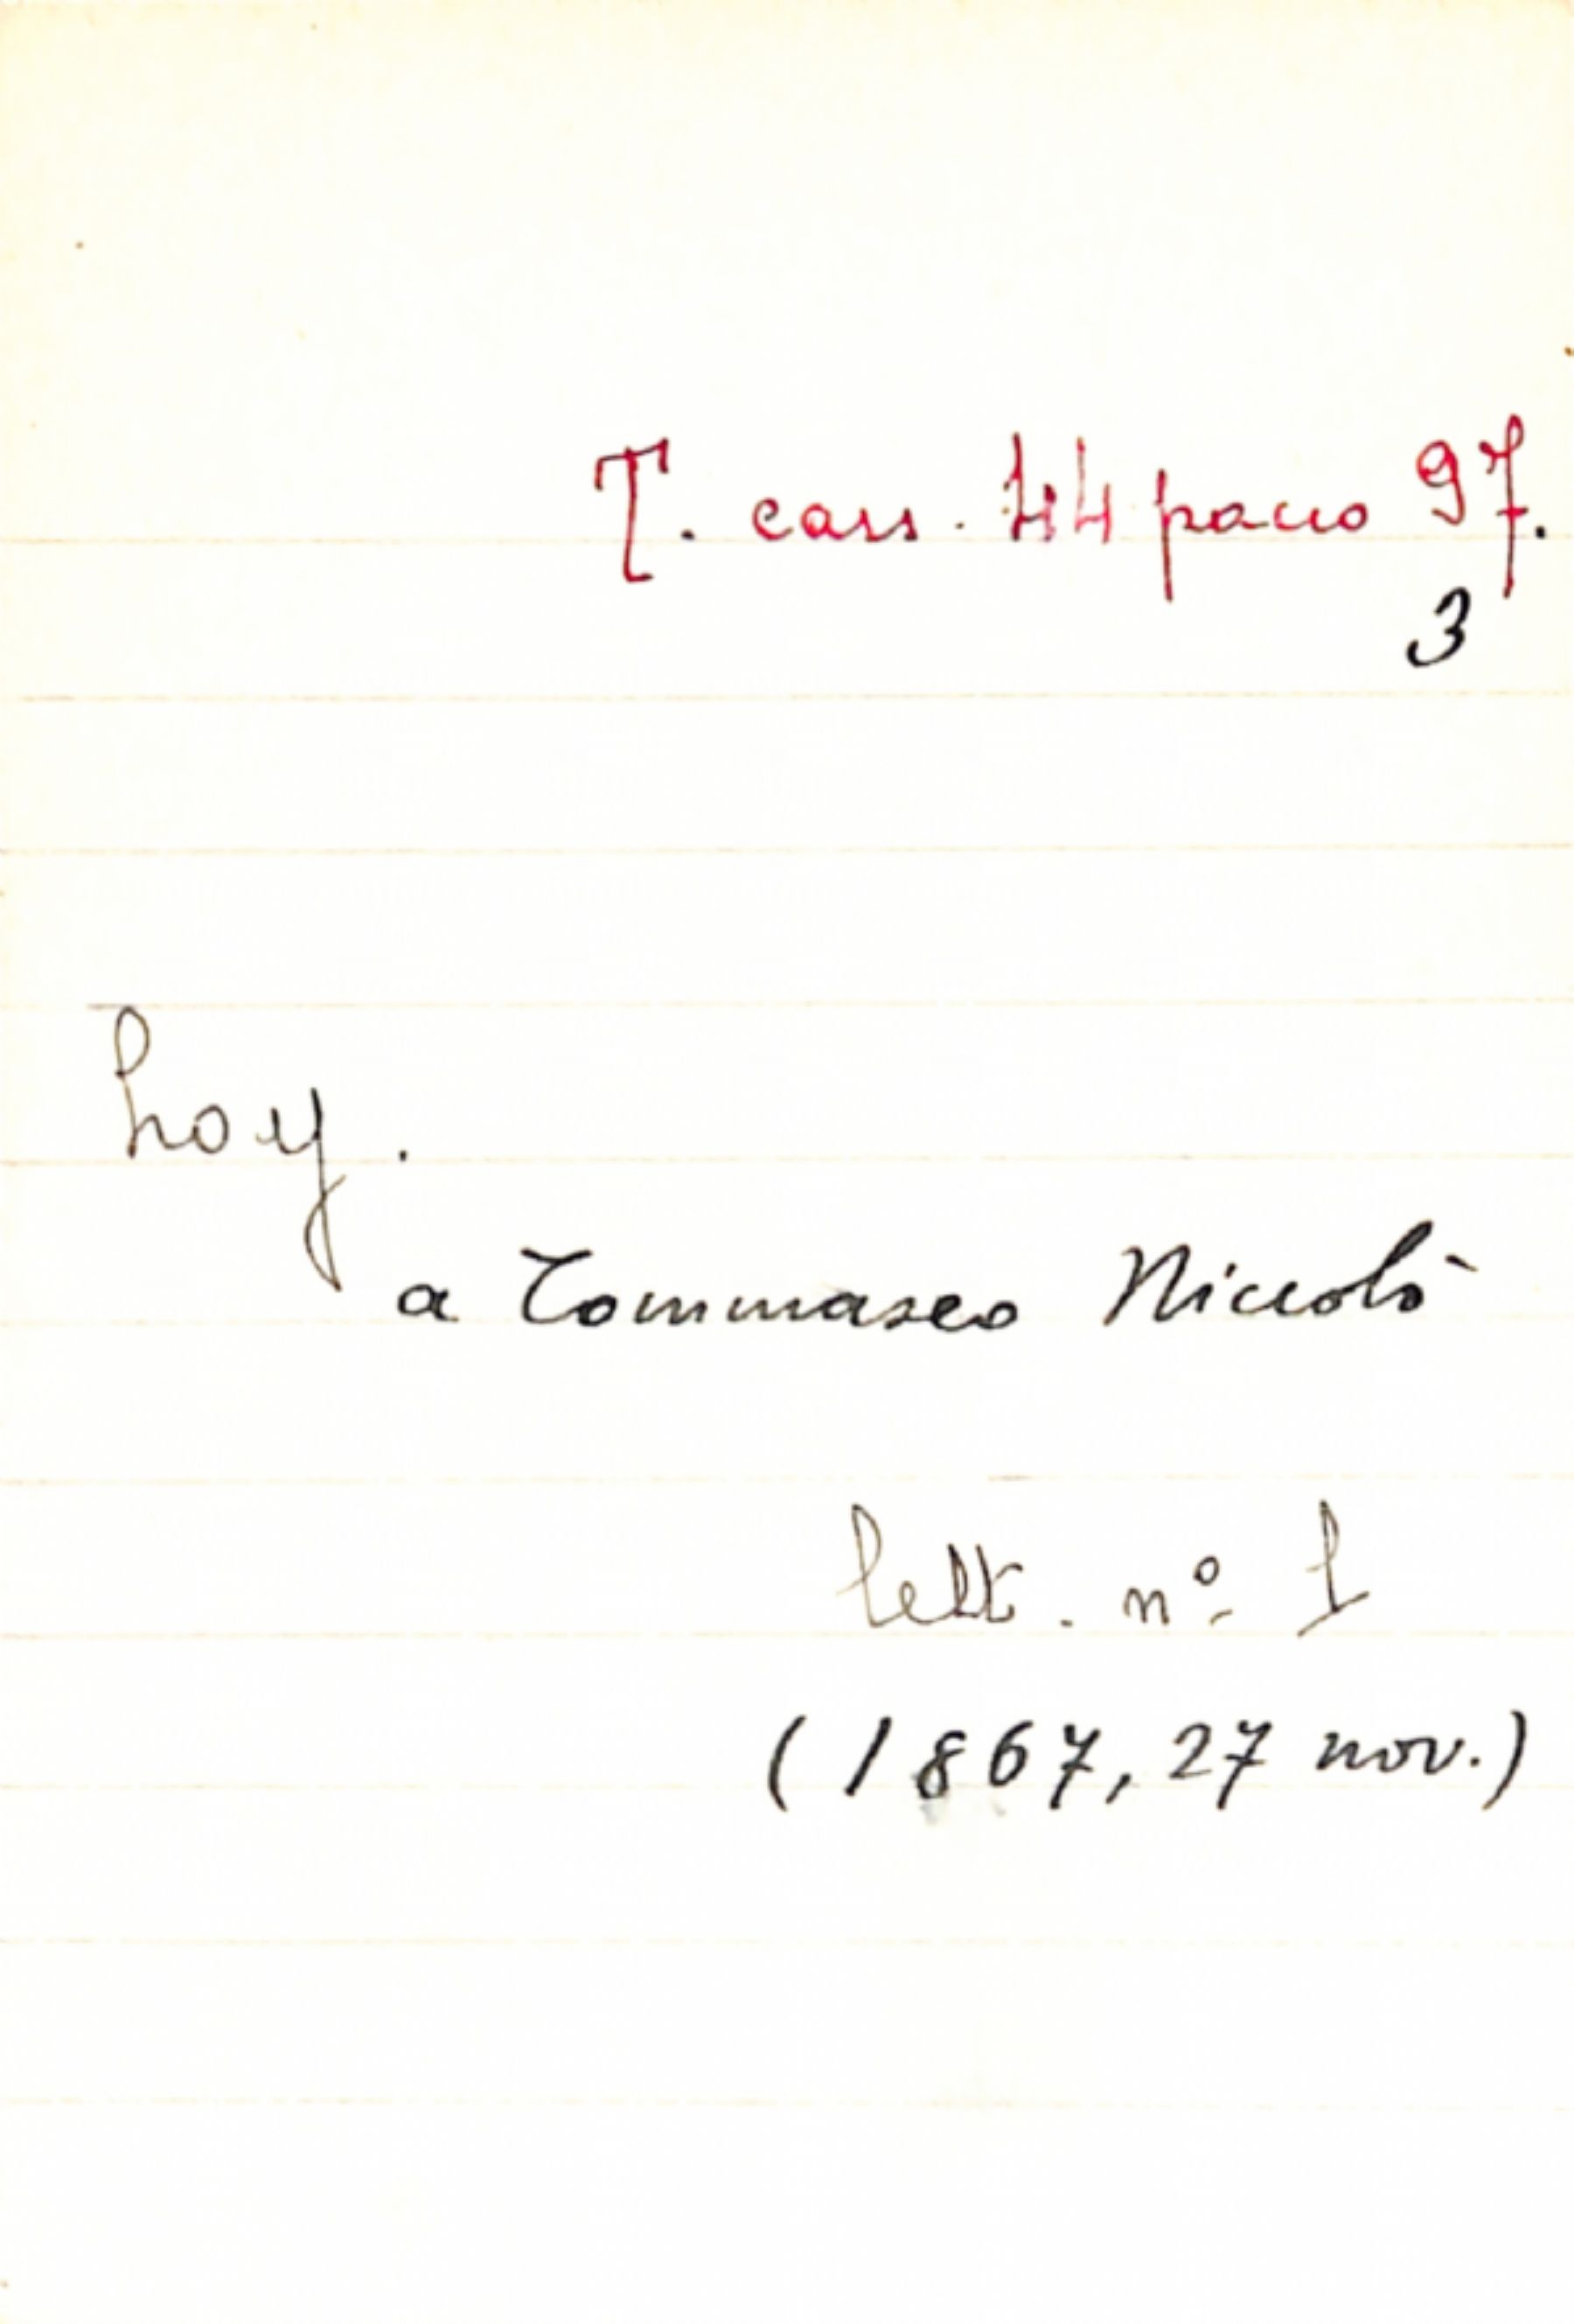 T. cass. 44 pacco 97.
3
hoy.
a Tommaseo Niccolò
lett. nº 1
(1867, 27 nov.)